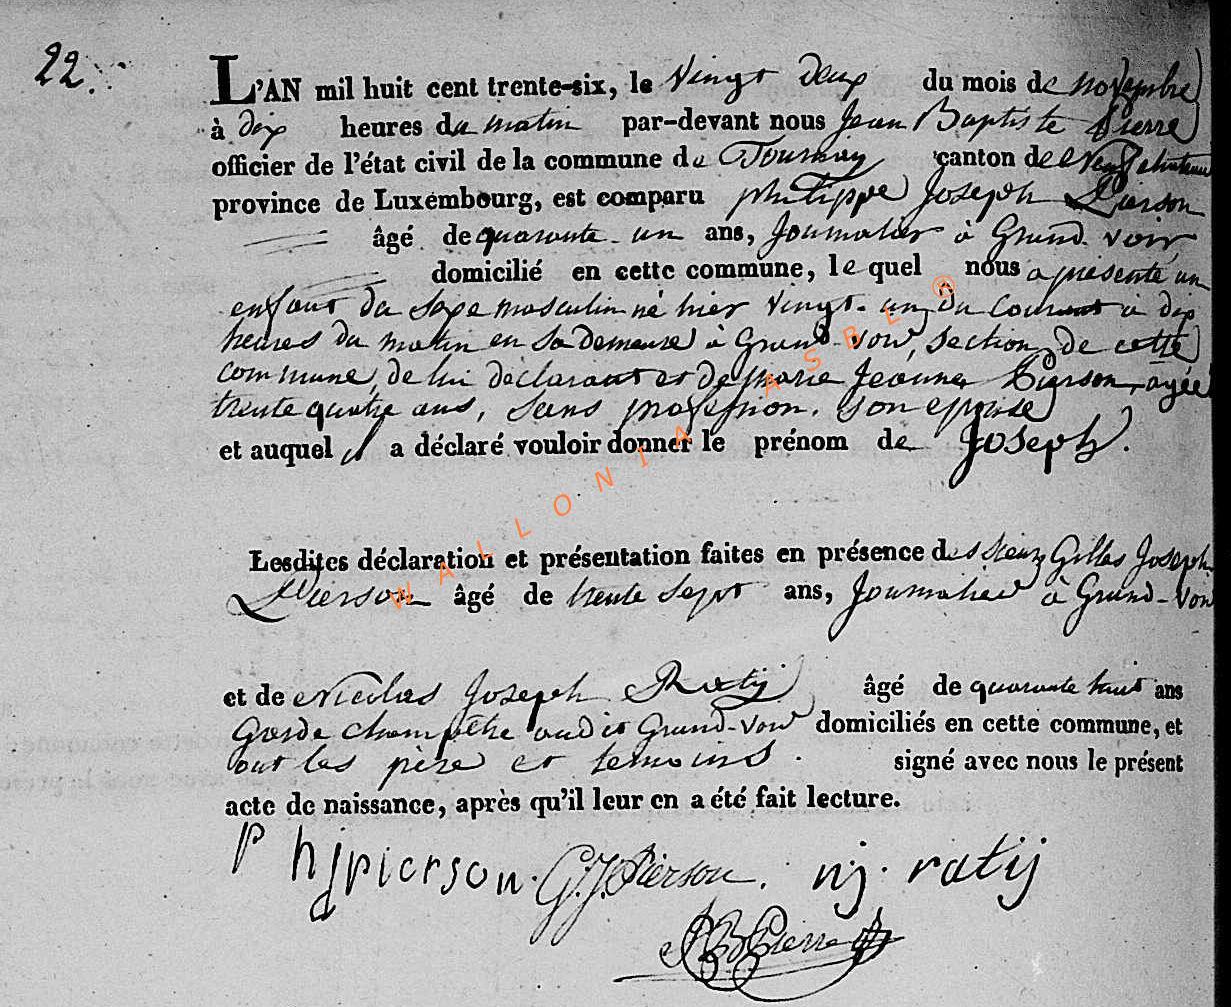 22.
L'AN mil huit cent trente-six, le vingt deux du mois de novembre
à dix heures du matin par-devant nous Jean Baptiste Pierre
officier de l'état civil de la commune de Tournay canton de Neufchateau
province de Luxembourg, est comparu philippe Joseph Pierson
âgé de quarante-un ans, Journalier à Grand-voir
domicilié en cette commune, lequel nous a présenté un
enfant du sexe masculin né hier vingt-un du courant à dix
heures du matin en sa demeure à Grand-voir, section de cette
commune, de lui déclarant et de marie Jeanne Pierson, agée
trente quatre ans, sans profession, son epouse
et auquel il a déclaré vouloir donner le prénom de Joseph.
Lesdites déclaration et présentation faites en présence des sieurs Gilles Joseph
Pierson âgé de trente sept ans, Journalier à Grand-voir
et de Nicolas Joseph Ratij âgé de quarante huit ans
garde champêtre audit Grand-voir domiciliés en cette commune, et
ont les père et temoins. signé avec nous le présent
acte de naissance, après qu'il leur en a été fait lecture.
P hjpierson. G.J. Pierson. nj. ratij
J B Pierre
WALLONIA ASBL ®